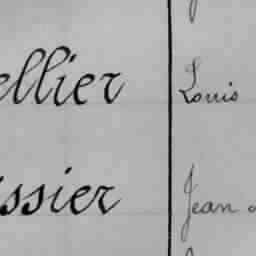 ellier Louis
ssier Jean